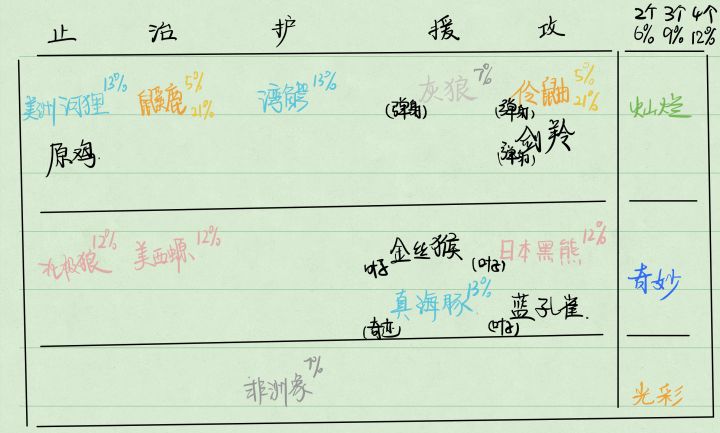 止 治 护 援 攻 2个 3个 4个
6% 9% 12%
美洲河狸 13% 鼷鹿 5% 21% 湾鳄 13% 灰狼 7% (弹射) 伶鼬 5% 21% (弹射) 灿烂
原鸡. 剑羚 (弹射)
北极狼 12% 美西螈 12% 金丝猴 日本黑熊 12% 奇妙
真海豚 13% (奇迹) 蓝孔雀.
非洲象 7% 光彩